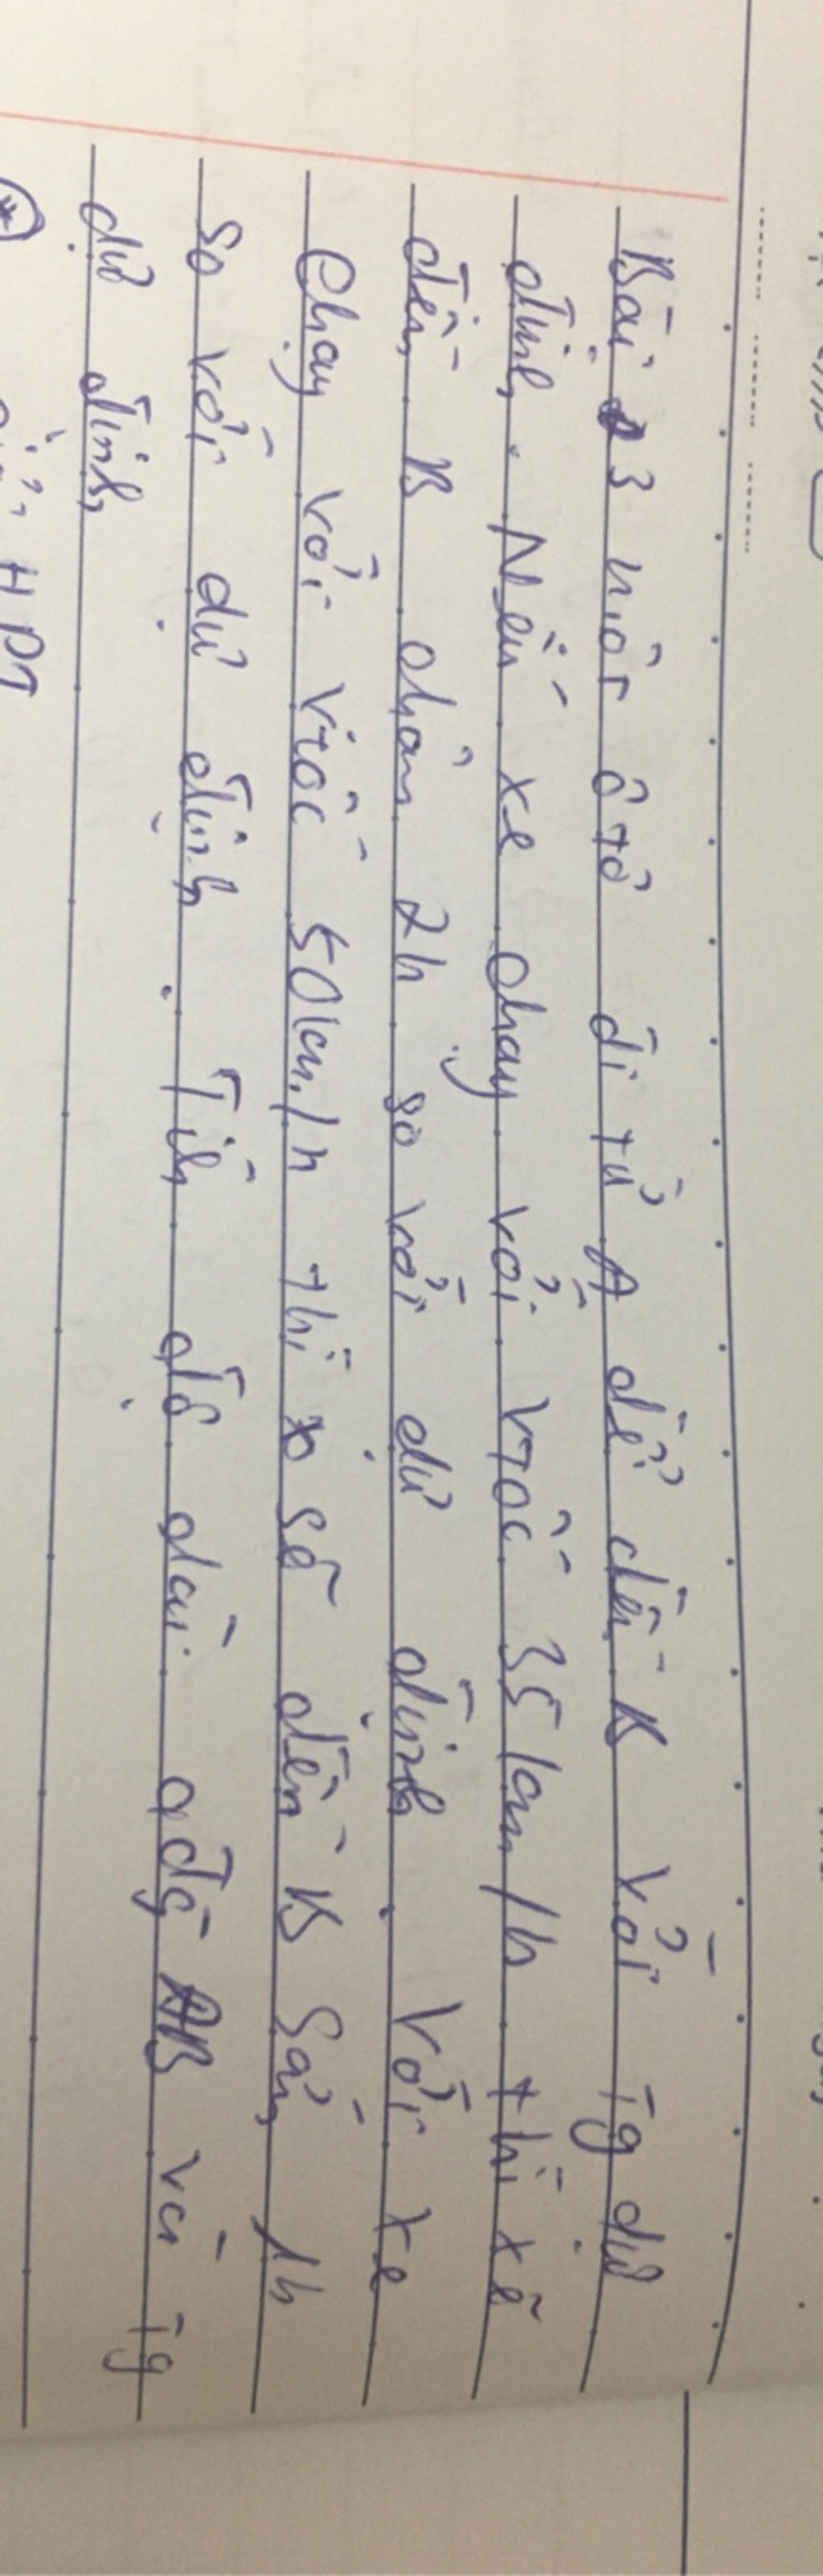 Bài 3 một ôtô đi từ A để đến B với tg dự
định. Nếu xe chạy với vtốc 35km/h thì xẽ
đến B chậm 2h so với dự định. Với xe
chạy với vtốc 50km/h thì xo sẽ đến B sớm 1h
so với dự định. Tính độ dài qđg AB và tg
dự định
HPT